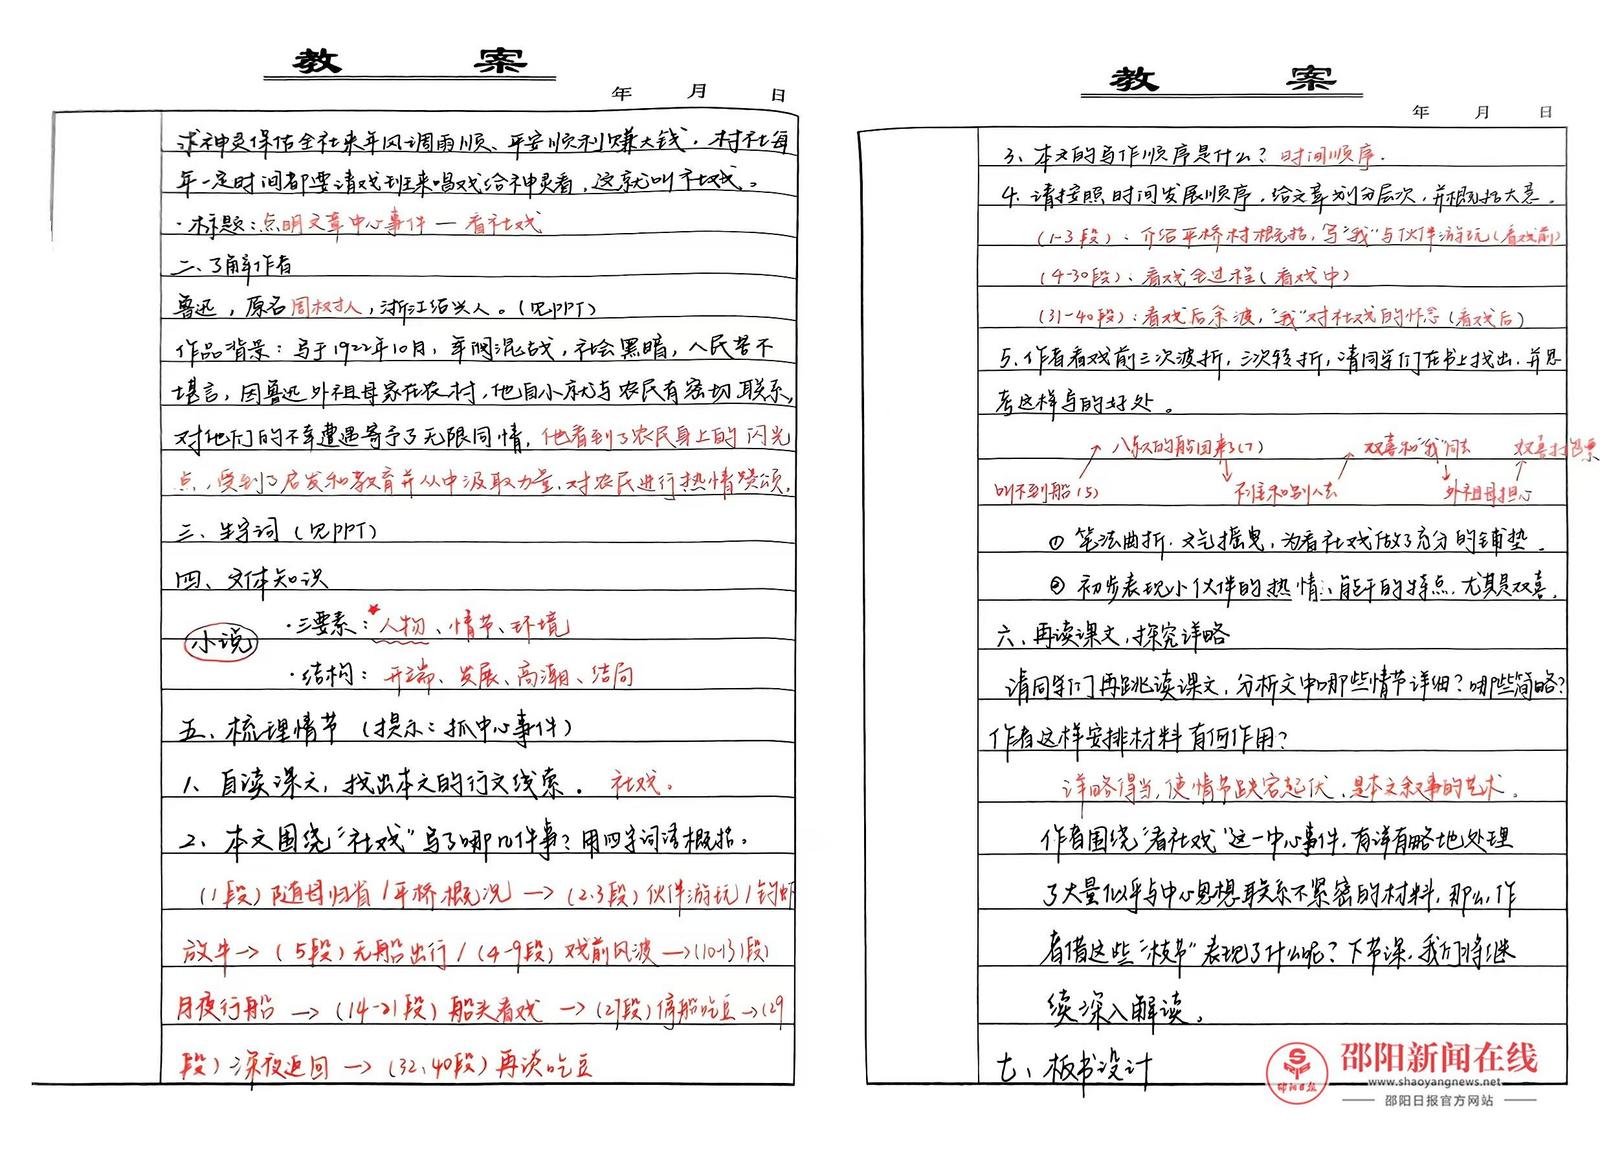 教 案
年 月 日
求神灵保佑全社来年风调雨顺、平安顺利赚大钱，村社每
年一定时间都要请戏班来唱戏给神灵看，这就叫社戏。
·标题：点明文章中心事件 — 看社戏
二、了解作者
鲁迅，原名周树人，浙江绍兴人。（见PPT）
作品背景：写于1922年10月，军阀混战，社会黑暗，人民苦不
堪言，因鲁迅外祖母家在农村，他自小就与农民有密切联系，
对他们的不幸遭遇寄予了无限同情，他看到了农民身上的闪光
点，受到了启发和教育并从中汲取力量，对农民进行热情赞颂。
三、生字词（见PPT）
四、文体知识
小说
·三要素：人物、情节、环境
·结构：开端、发展、高潮、结局
五、梳理情节（提示：抓中心事件）
1、自读课文，找出本文的行文线索。 社戏。
2、本文围绕“社戏”写了哪几件事？用四字词语概括。
（1段）随母归省/平桥概况 → （2、3段）伙伴游玩/钓虾
放牛→（5段）无船出行/（4-9段）戏前风波→（10-13段）
月夜行船 → （14-21段）船头看戏 → （27段）停船吃豆→（29
段）深夜返回 → （32、40段）再谈吃豆
教 案
年 月 日
3、本文的写作顺序是什么？时间顺序.
4、请按照时间发展顺序，给文章划分层次，并概括大意。
（1-3段）：介绍平桥村概括，写“我”与伙伴游玩（看戏前）
（4-30段）：看戏全过程（看戏中）
（31-40段）：看戏后余波，“我”对社戏的怀念（看戏后）
5、作者看戏前三次波折，三次转折，请同学们在书上找出，并思
考这样写的好处。
↗ 八叔的船回来了（7） ↗ 双喜和“我”同去 双喜打包票
叫不到船（5） ↘ 不准和别人去 ↘ 外祖母担心 ↑
① 笔法曲折．文气摇曳，为看社戏做了充分的铺垫．
② 初步表现小伙伴的热情、能干的特点，尤其是双喜．
六、再读课文，探究详略
请同学们再跳读课文，分析文中哪些情节详细？哪些简略？
作者这样安排材料有何作用？
详略得当，使情节跌宕起伏，是本文叙事的艺术。
作者围绕“看社戏”这一中心事件，有详有略地处理
了大量似乎与中心思想联系不紧密的材料，那么，作
者借这些“枝节”表现了什么呢？下节课，我们将继
续深入解读。
七、板书设计
邵阳日报
邵阳新闻在线
www.shaoyangnews.net
邵阳日报官方网站